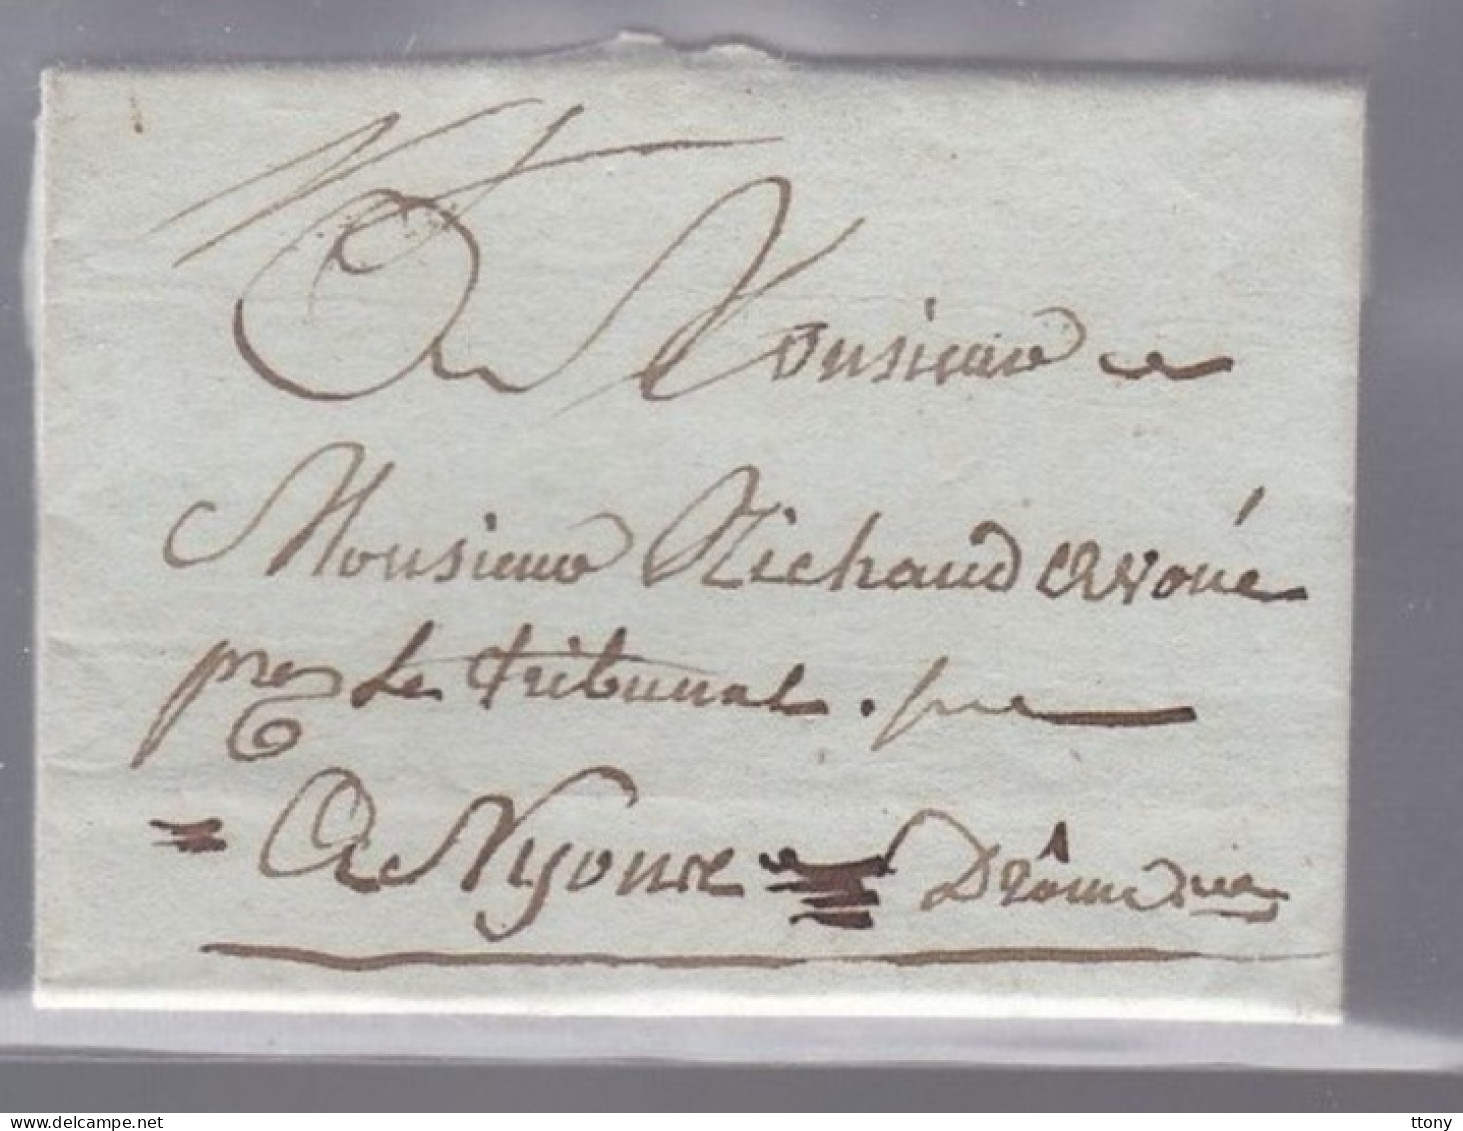 A Monsieur
Monsieur Richaud avoué
près le tribunal.
A Nyons Drôme
www.delcampe.net
ttony